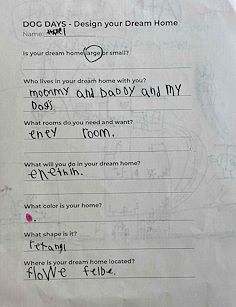 DOG DAYS - Design your Dream Home
Name:
Is your dream home large or small?
Who lives in your dream home with you?
mommy and DaDDy and My
Dogs
What rooms do you need and want?
eney room.
What will you do in your dream home?
enethin.
What color is your home?
What shape is it?
retangl
Where is your dream home located?
flowe felbe.